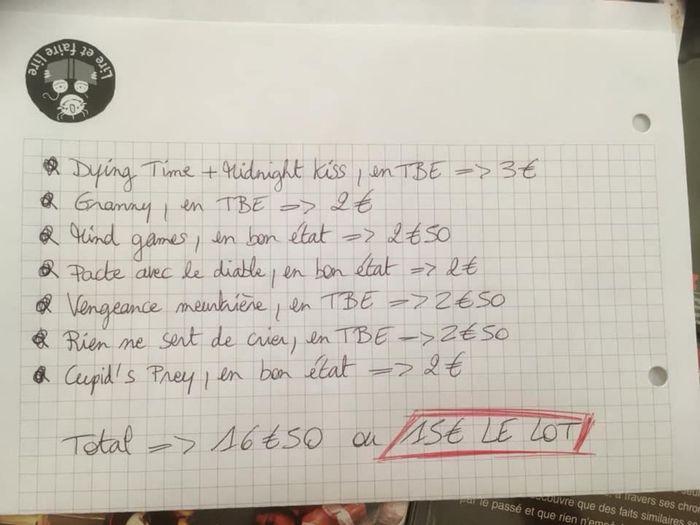 Lire et faire lire
Dying Time + Midnight Kiss, en TBE => 3€
Granny, en TBE => 2€
Mind games, en bon état => 2€50
Pacte avec le diable, en bon état => 2€
Vengeance meurtrière, en TBE => 2€50
Rien ne sert de crier, en TBE => 2€50
Cupid's Prey, en bon état => 2€
Total => 16€50 ou 15€ LE LOT
à travers ses
que des faits similaires
le passé et que rien